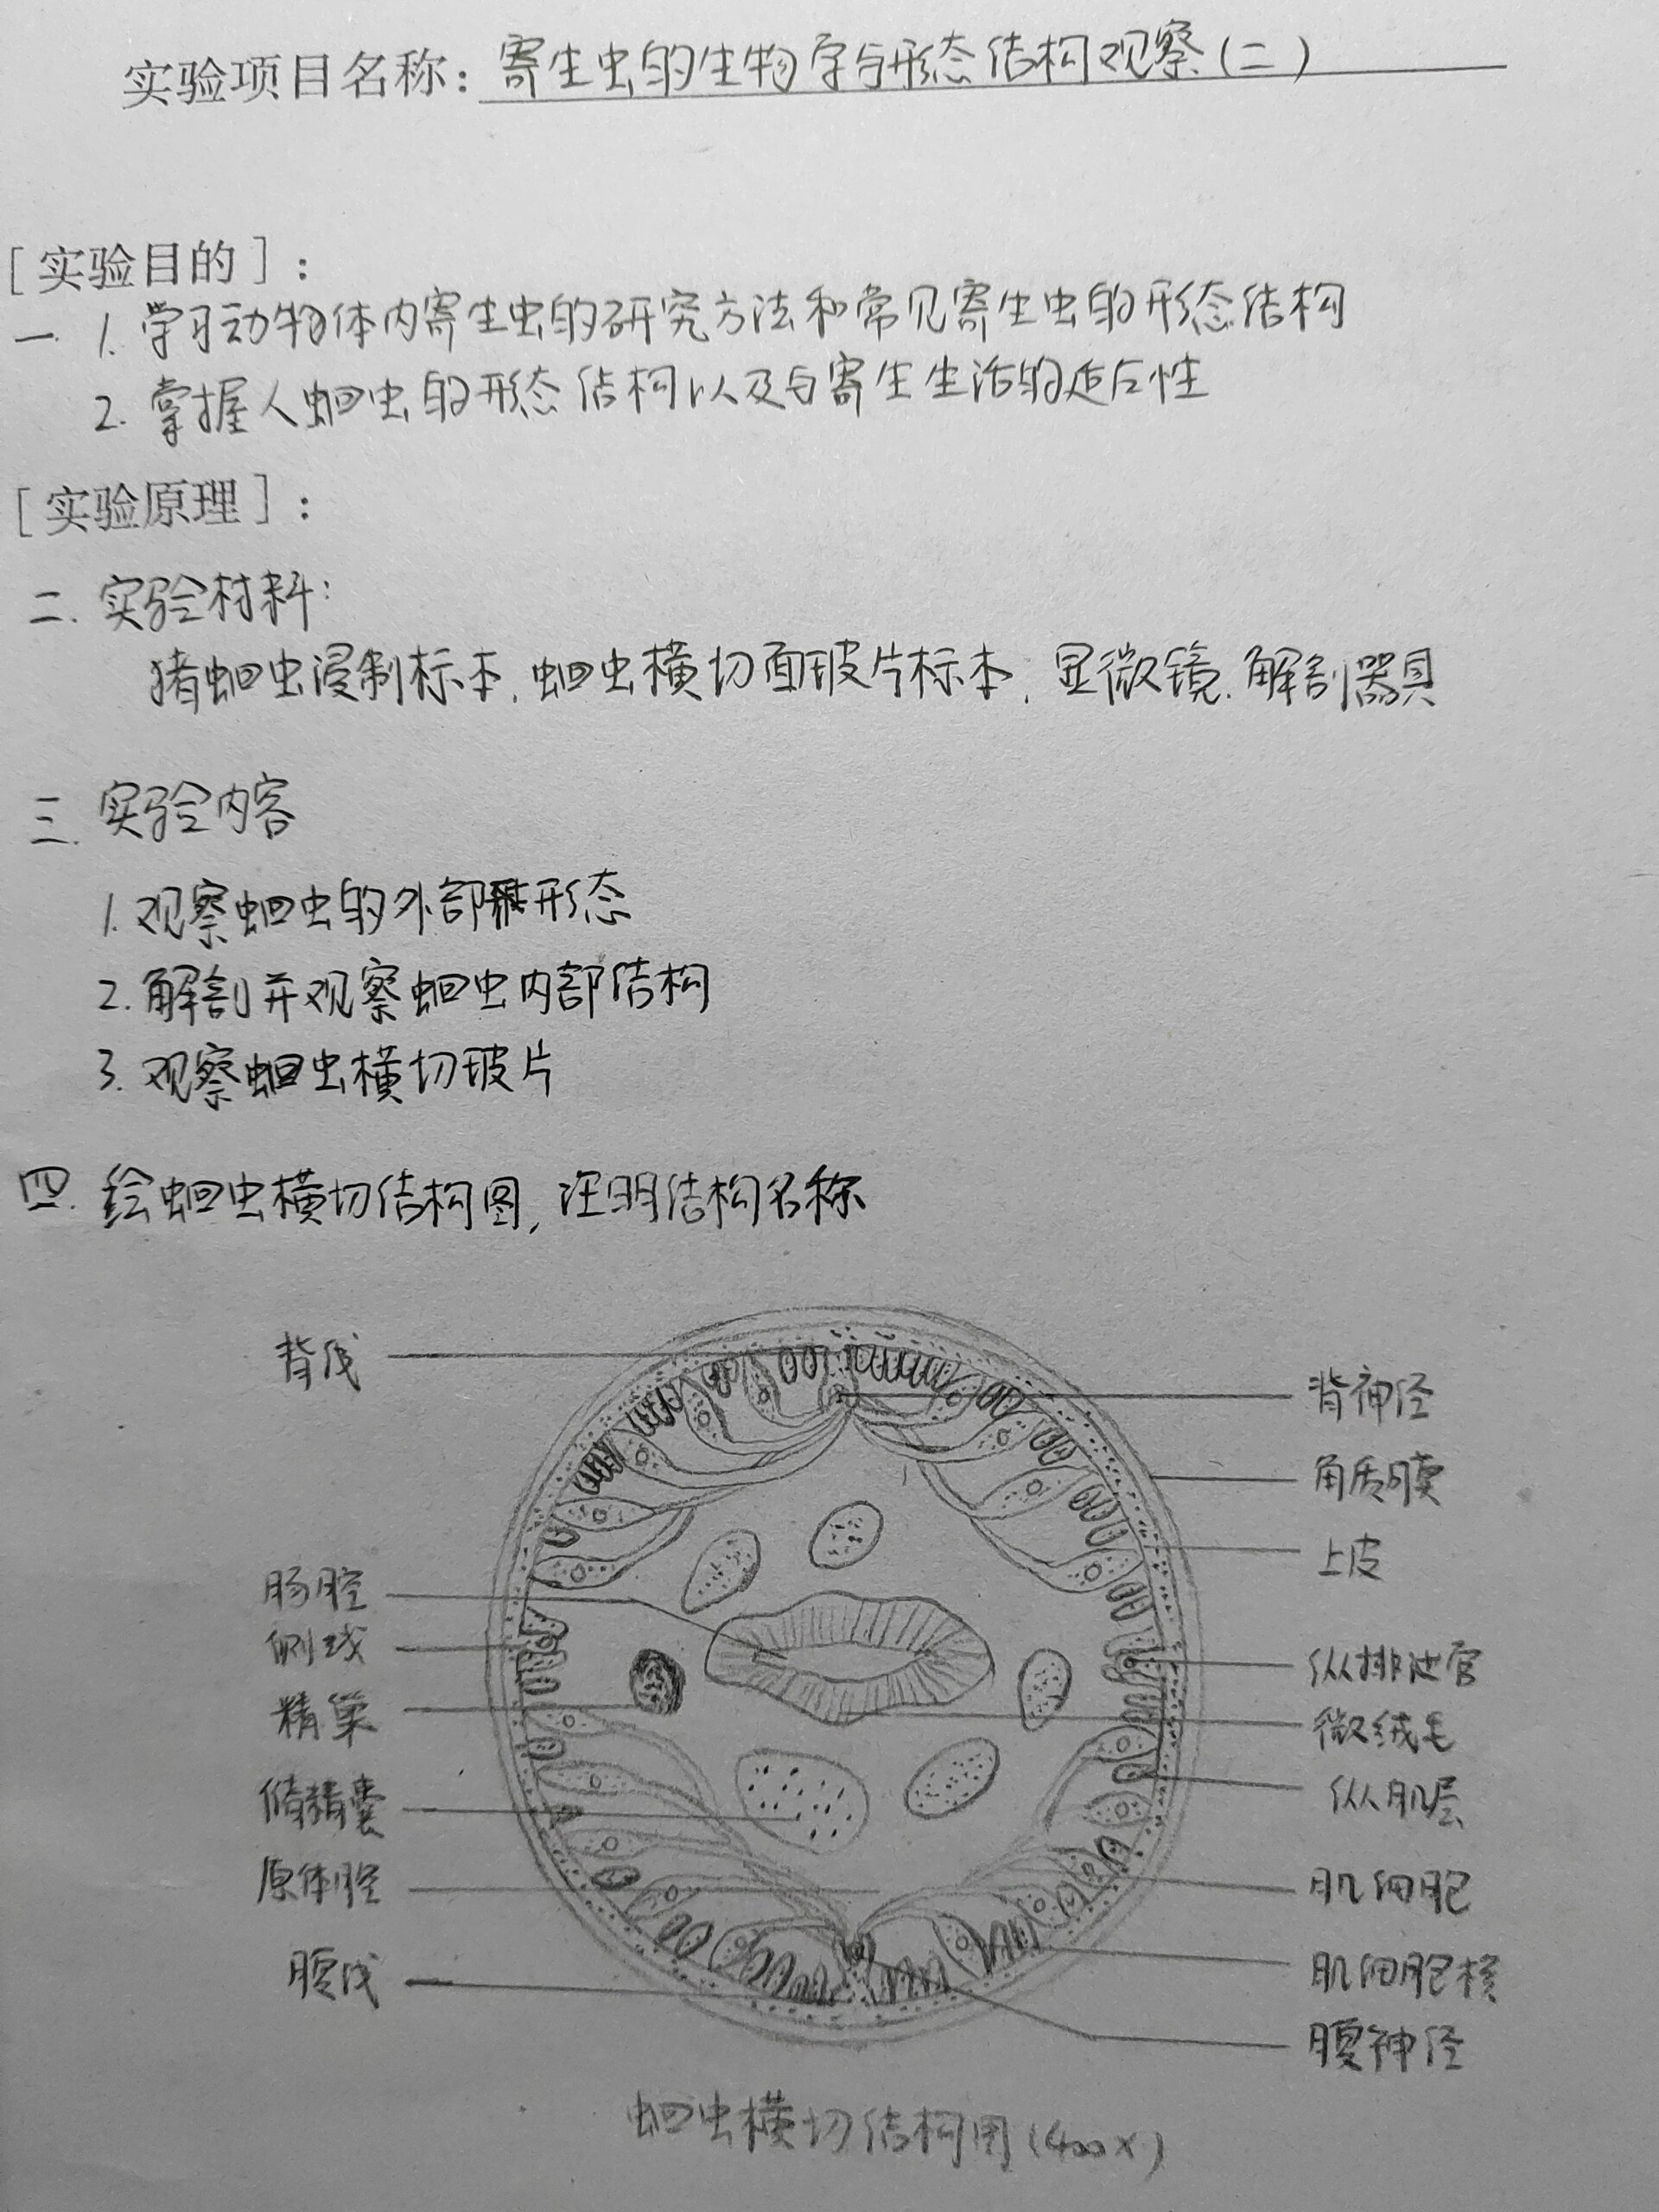 实验项目名称：寄生虫的生物学与形态结构观察（二）
［实验目的］：
一. 1. 学习动物体内寄生虫的研究方法和常见寄生虫的形态结构
2. 掌握人蛔虫的形态结构以及与寄生生活的适应性
［实验原理］：
二. 实验材料：
猪蛔虫浸制标本, 蛔虫横切面玻片标本, 显微镜. 解剖器具
三. 实验内容
1. 观察蛔虫的外部形态
2. 解剖并观察蛔虫内部结构
3. 观察蛔虫横切玻片
四. 绘蛔虫横切结构图, 注明结构名称
背线
背神经
角质膜
上皮
肠腔
侧线
纵排泄管
精巢
微绒毛
储精囊
纵肌层
原体腔
肌细胞
腹线
肌细胞核
腹神经
蛔虫横切结构图（400×）